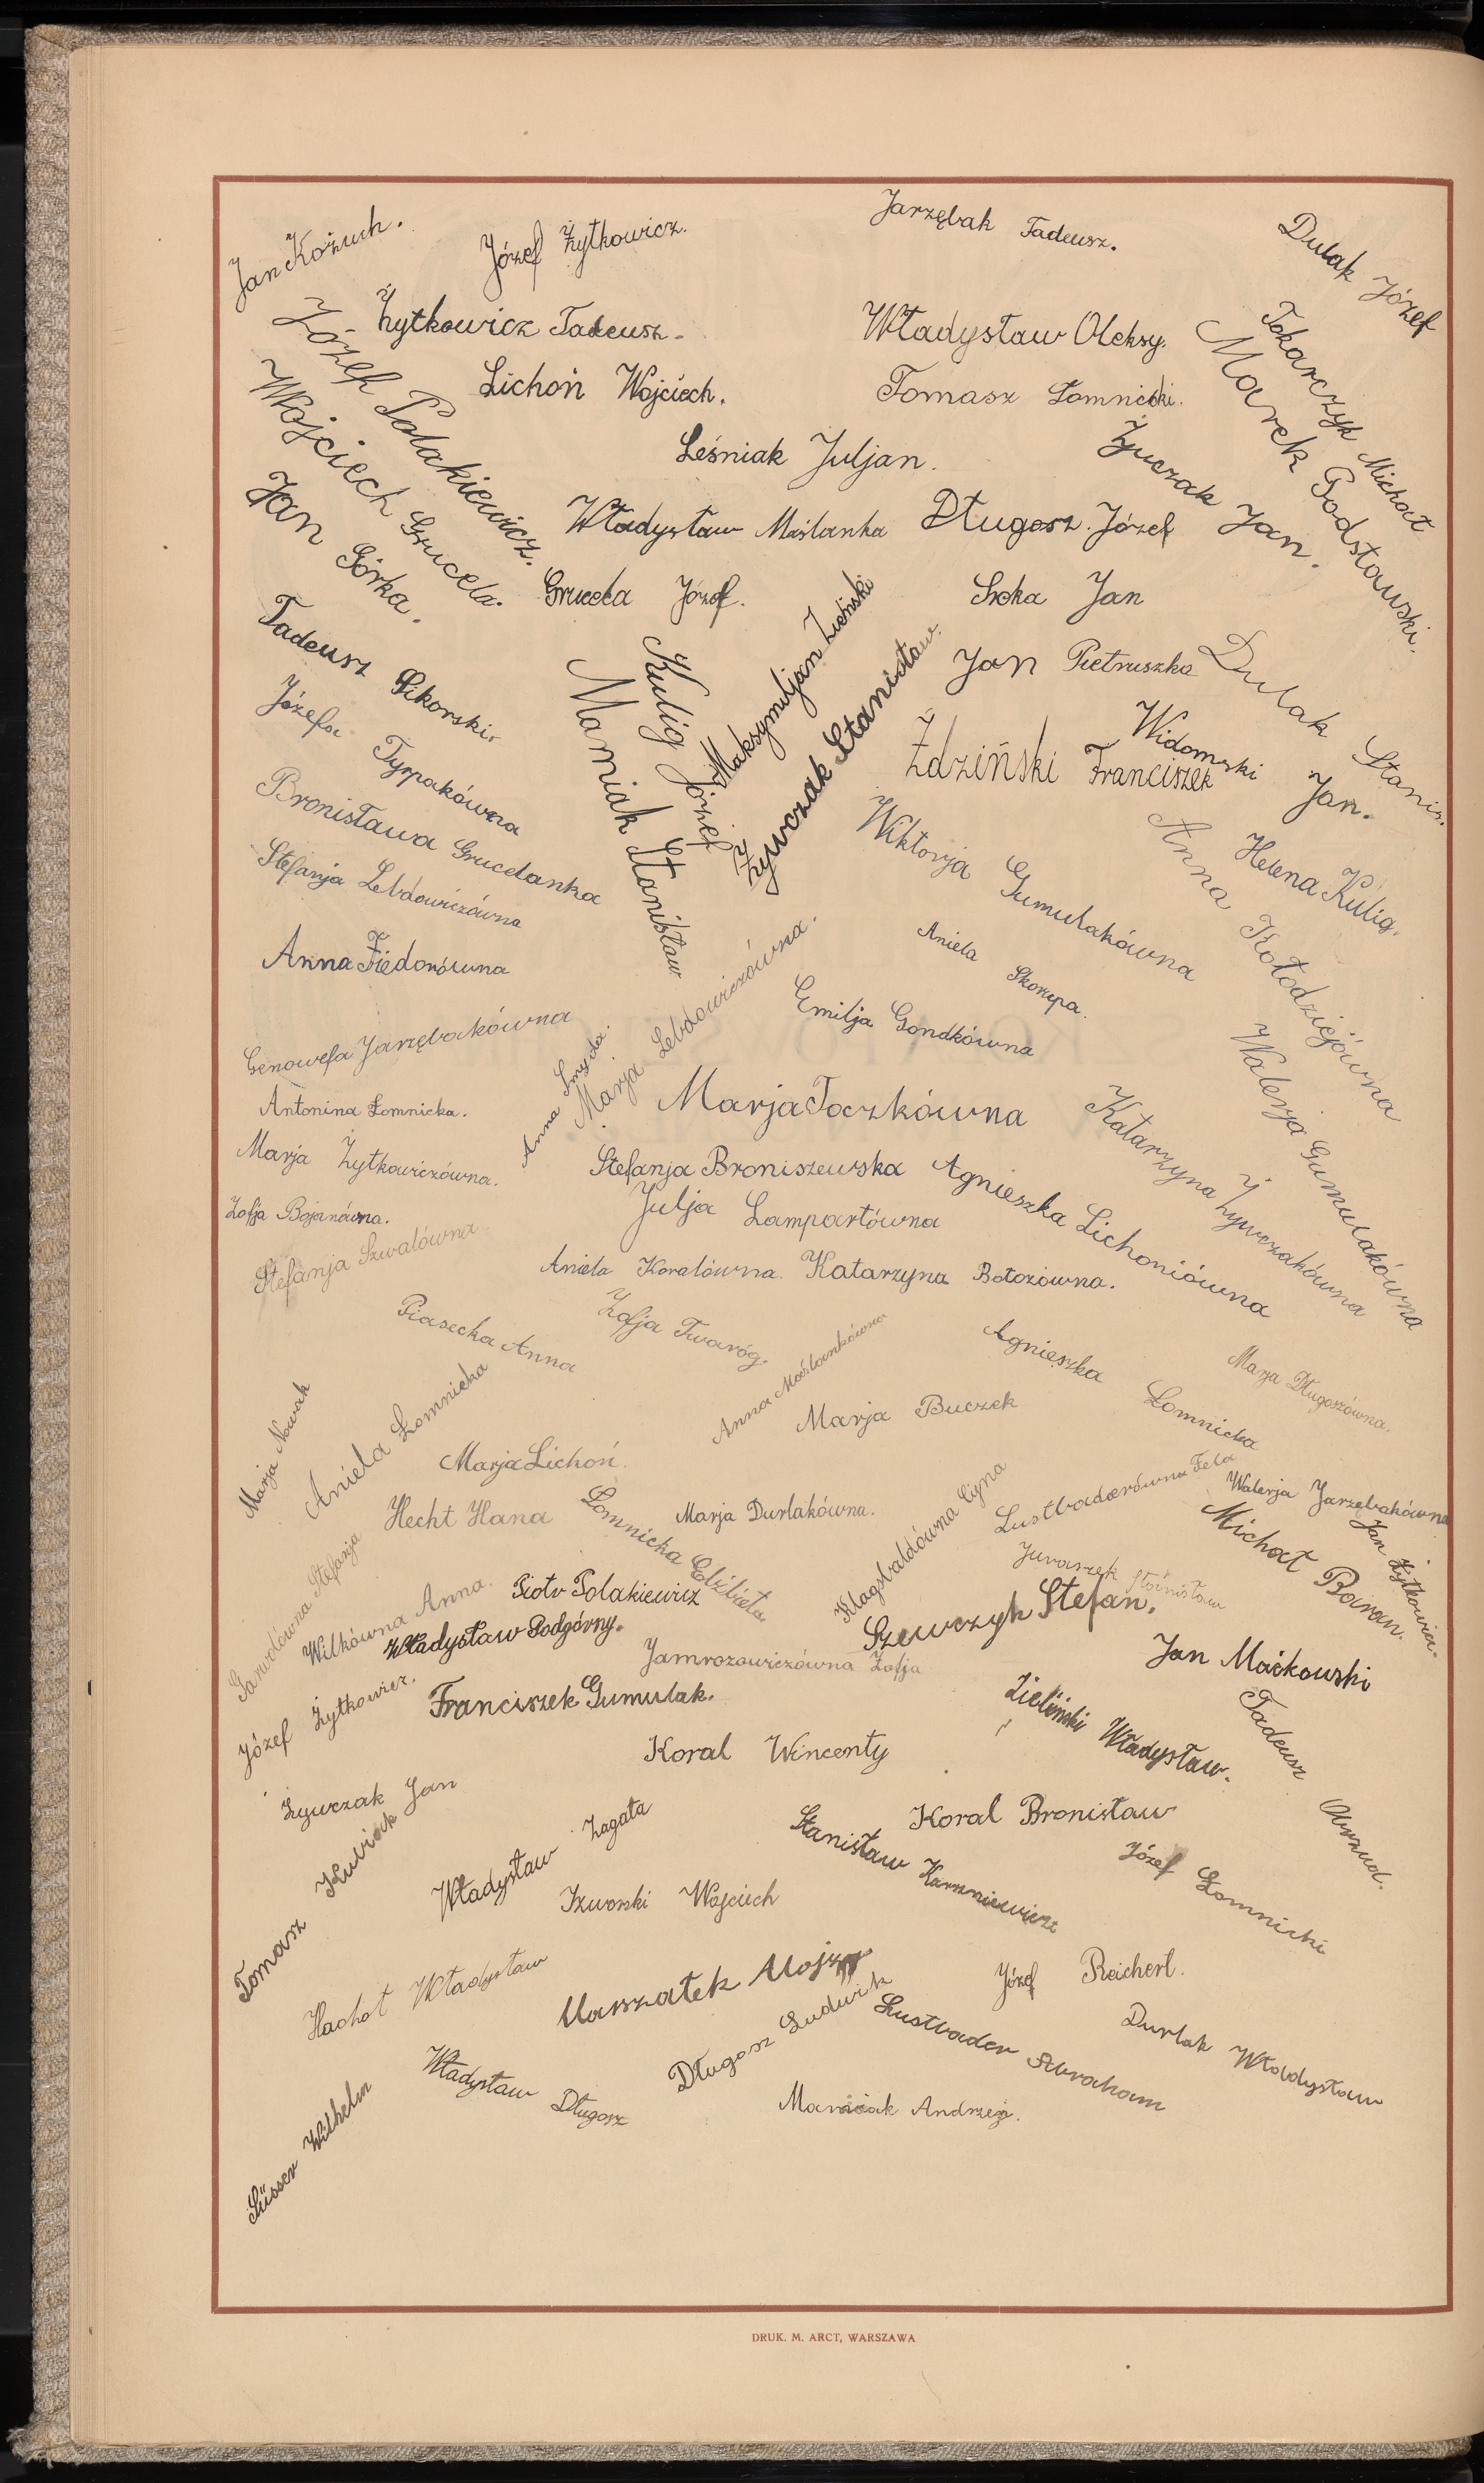 Jan Kożuch.
Józef Żytkowicz.
Jarzębak Tadeusz.
Dulak Józef
Żytkowicz Tadeusz.
Władysław Oleksy.
Tokarczyk Michał
Józef Polakiewicz.
Lichoń Wojciech.
Tomasz Łomnicki.
Marek Godsławski.
Wojciech Gruceła.
Leśniak Juljan.
Żywczak Jan.
Jan Górka.
Władysław Maślanka
Długosz Józef
Gruceła Józef.
Sroka Jan
Tadeusz Sikorski.
Kulig Józef
Maksymiljan Zieliński
Jan Pietruszka
Dulak Stanis.
Józefa Tyrpakówna
Mamiak Stanisław
Żywczak Stanisław.
Żdziński Franciszek
Widomski Jan.
Bronisława Grucelanka
Wiktorja Gumulakówna
Helena Kulig.
Stefanja Lebdowiczówna
Anna Kołodziejówna
Anna Fiedorówna
Aniela Skorupa.
Emilja Gondkówna
Genowefa Jarzębakówna
Anna Smyda.
Marja Lebdowiczówna.
Walerja Gumulakówna
Antonina Łomnicka.
Marja Toczkówna
Katarzyna Żywczakówna
Marja Żytkowiczówna.
Stefanja Broniszewska
Agnieszka Lichoniówna
Zofja Bojanówna.
Julja Lampartówna
Stefanja Szwalówna
Aniela Koralówna.
Katarzyna Bołozówna.
Piasecka Anna
Zofja Twaróg.
Anna Maślankówna
Agnieszka Łomnicka
Marja Długoszówna.
Marja Nowak
Aniela Łomnicka
Marja Buczek
Marja Lichoń.
Hecht Hana
Łomnicka Elżbieta
Marja Durlakówna.
Klagsbaldówna Cyna
Lustbaderówna Fela
Walerja Jarzębakówna
Stefanja
Wilkówna Anna.
Piotr Polakiewicz
Juraszek Stanisław
Michał Baran.
Jan Żytkowicz.
Władysław Podgórny.
Szewczyk Stefan.
Jamrozowiczówna Zofja
Jan Maćkowski
Józef Żytkowicz.
Franciszek Gumulak.
Zieliński Władysław.
Tadeusz Obrzud.
Koral Wincenty
Żywczak Jan
Koral Bronisław
Tomasz Kubiak
Władysław Zagata
Stanisław Karaniewicz
Józef Łomnicki
Izworski Wojciech
Hachoł Władysław
Marszałek Mojż
Józef Reichert.
Długosz Ludwik
Lustbader Abraham
Durlak Władysław
Władysław Długosz
Maraniak Andrzej.
Süsser Wilhelm
DRUK. M. ARCT, WARSZAWA